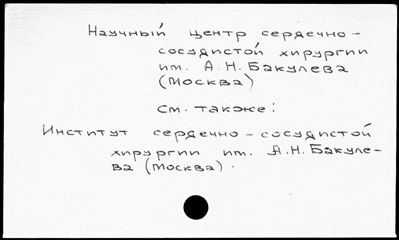 Научный центр сердечно-
сосудистой хирургии
им. А.Н.Бакулева
(Москва)
см. также:
Институт сердечно-сосудистой
хирургии им. А.Н.Бакуле-
ва (Москва).